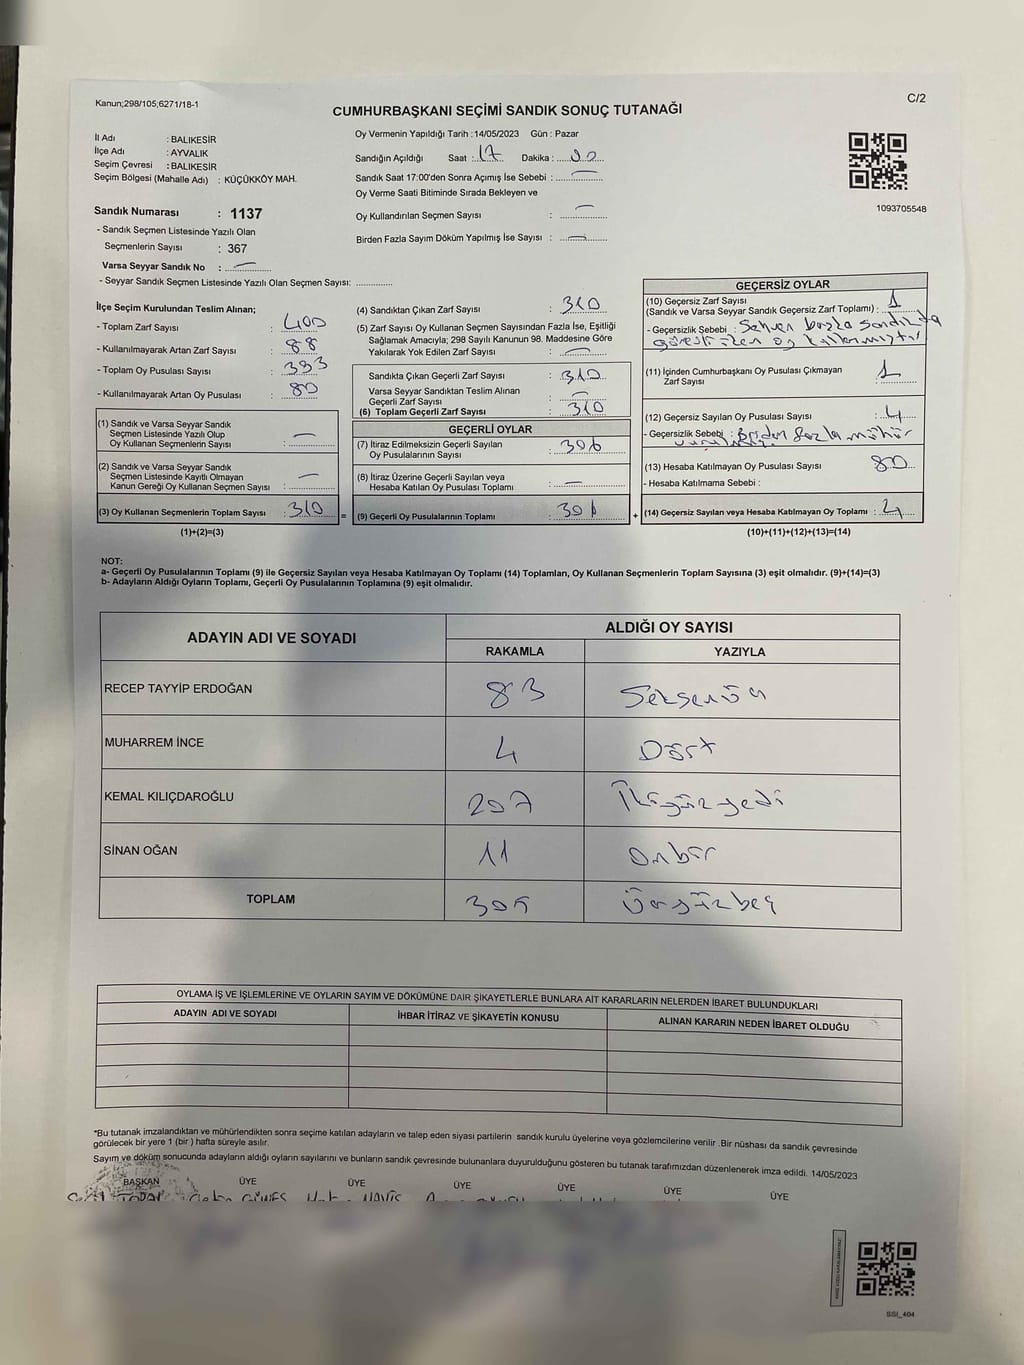 Kanun;298/105;6271/18-1
C/2
CUMHURBAŞKANI SEÇİMİ SANDIK SONUÇ TUTANAĞI
İl Adı : BALIKESİR
İlçe Adı : AYVALIK
Seçim Çevresi : BALIKESİR
Seçim Bölgesi (Mahalle Adı) : KÜÇÜKKÖY MAH.
Oy Vermenin Yapıldığı Tarih :14/05/2023 Gün : Pazar
Sandığın Açıldığı Saat : 17 Dakika : 00
Sandık Saat 17:00'den Sonra Açımış İse Sebebi :
Oy Verme Saati Bitiminde Sırada Bekleyen ve
Oy Kullandırılan Seçmen Sayısı :
Birden Fazla Sayım Döküm Yapılmış İse Sayısı :
1093705548
Sandık Numarası : 1137
- Sandık Seçmen Listesinde Yazılı Olan
Seçmenlerin Sayısı : 367
Varsa Seyyar Sandık No :
- Seyyar Sandık Seçmen Listesinde Yazılı Olan Seçmen Sayısı:
İlçe Seçim Kurulundan Teslim Alınan;
- Toplam Zarf Sayısı : 400
- Kullanılmayarak Artan Zarf Sayısı : 88
- Toplam Oy Pusulası Sayısı : 393
- Kullanılmayarak Artan Oy Pusulası : 80
(1) Sandık ve Varsa Seyyar Sandık
Seçmen Listesinde Yazılı Olup
Oy Kullanan Seçmenlerin Sayısı :
(2) Sandık ve Varsa Seyyar Sandık
Seçmen Listesinde Kayıtlı Olmayan
Kanun Gereği Oy Kullanan Seçmen Sayısı :
(3) Oy Kullanan Seçmenlerin Toplam Sayısı : 310
(1)+(2)=(3)
(4) Sandıktan Çıkan Zarf Sayısı : 310
(5) Zarf Sayısı Oy Kullanan Seçmen Sayısından Fazla İse, Eşitliği
Sağlamak Amacıyla; 298 Sayılı Kanunun 98. Maddesine Göre
Yakılarak Yok Edilen Zarf Sayısı :
Sandıkta Çıkan Geçerli Zarf Sayısı : 310
Varsa Seyyar Sandıktan Teslim Alınan
Geçerli Zarf Sayısı :
(6) Toplam Geçerli Zarf Sayısı : 310
GEÇERLİ OYLAR
(7) İtiraz Edilmeksizin Geçerli Sayılan
Oy Pusulalarının Sayısı : 306
(8) İtiraz Üzerine Geçerli Sayılan veya
Hesaba Katılan Oy Pusulası Toplamı :
= (9) Geçerli Oy Pusulalarının Toplamı : 306
GEÇERSİZ OYLAR
(10) Geçersiz Zarf Sayısı
(Sandık ve Varsa Seyyar Sandık Geçersiz Zarf Toplamı) : 1
- Geçersizlik Sebebi : Sehven başka sandıkda
görevli iken oy kullanmıştır
(11) İçinden Cumhurbaşkanı Oy Pusulası Çıkmayan
Zarf Sayısı : 1
(12) Geçersiz Sayılan Oy Pusulası Sayısı : 4
- Geçersizlik Sebebi : Birden fazla mühür
(13) Hesaba Katılmayan Oy Pusulası Sayısı 80
- Hesaba Katılmama Sebebi :
+ (14) Geçersiz Sayılan veya Hesaba Katılmayan Oy Toplamı : 4
(10)+(11)+(12)+(13)=(14)
NOT:
a- Geçerli Oy Pusulalarının Toplamı (9) ile Geçersiz Sayılan veya Hesaba Katılmayan Oy Toplamı (14) Toplamları, Oy Kullanan Seçmenlerin Toplam Sayısına (3) eşit olmalıdır. (9)+(14)=(3)
b- Adayların Aldığı Oyların Toplamı, Geçerli Oy Pusulalarının Toplamına (9) eşit olmalıdır.
ADAYIN ADI VE SOYADI ALDIĞI OY SAYISI
RAKAMLA YAZIYLA
RECEP TAYYİP ERDOĞAN 83 Seksenüç
MUHARREM İNCE 4 Dört
KEMAL KILIÇDAROĞLU 207 İkiyüzyedi
SİNAN OĞAN 11 Onbir
TOPLAM 305 Üçyüzbeş
OYLAMA İŞ VE İŞLEMLERİNE VE OYLARIN SAYIM VE DÖKÜMÜNE DAİR ŞİKAYETLERLE BUNLARA AİT KARARLARIN NELERDEN İBARET BULUNDUKLARI
ADAYIN ADI VE SOYADI İHBAR İTİRAZ VE ŞİKAYETİN KONUSU ALINAN KARARIN NEDEN İBARET OLDUĞU
*Bu tutanak imzalandıktan ve mühürlendikten sonra seçime katılan adayların ve talep eden siyasi partilerin sandık kurulu üyelerine veya gözlemcilerine verilir .Bir nüshası da sandık çevresinde
görülecek bir yere 1 (bir ) hafta süreyle asılır.
Sayım ve döküm sonucunda adayların aldığı oyların sayılarını ve bunların sandık çevresinde bulunanlara duyurulduğunu gösteren bu tutanak tarafımızdan düzenlenerek imza edildi. 14/05/2023
BAŞKAN ÜYE ÜYE ÜYE ÜYE ÜYE ÜYE
SSI_404